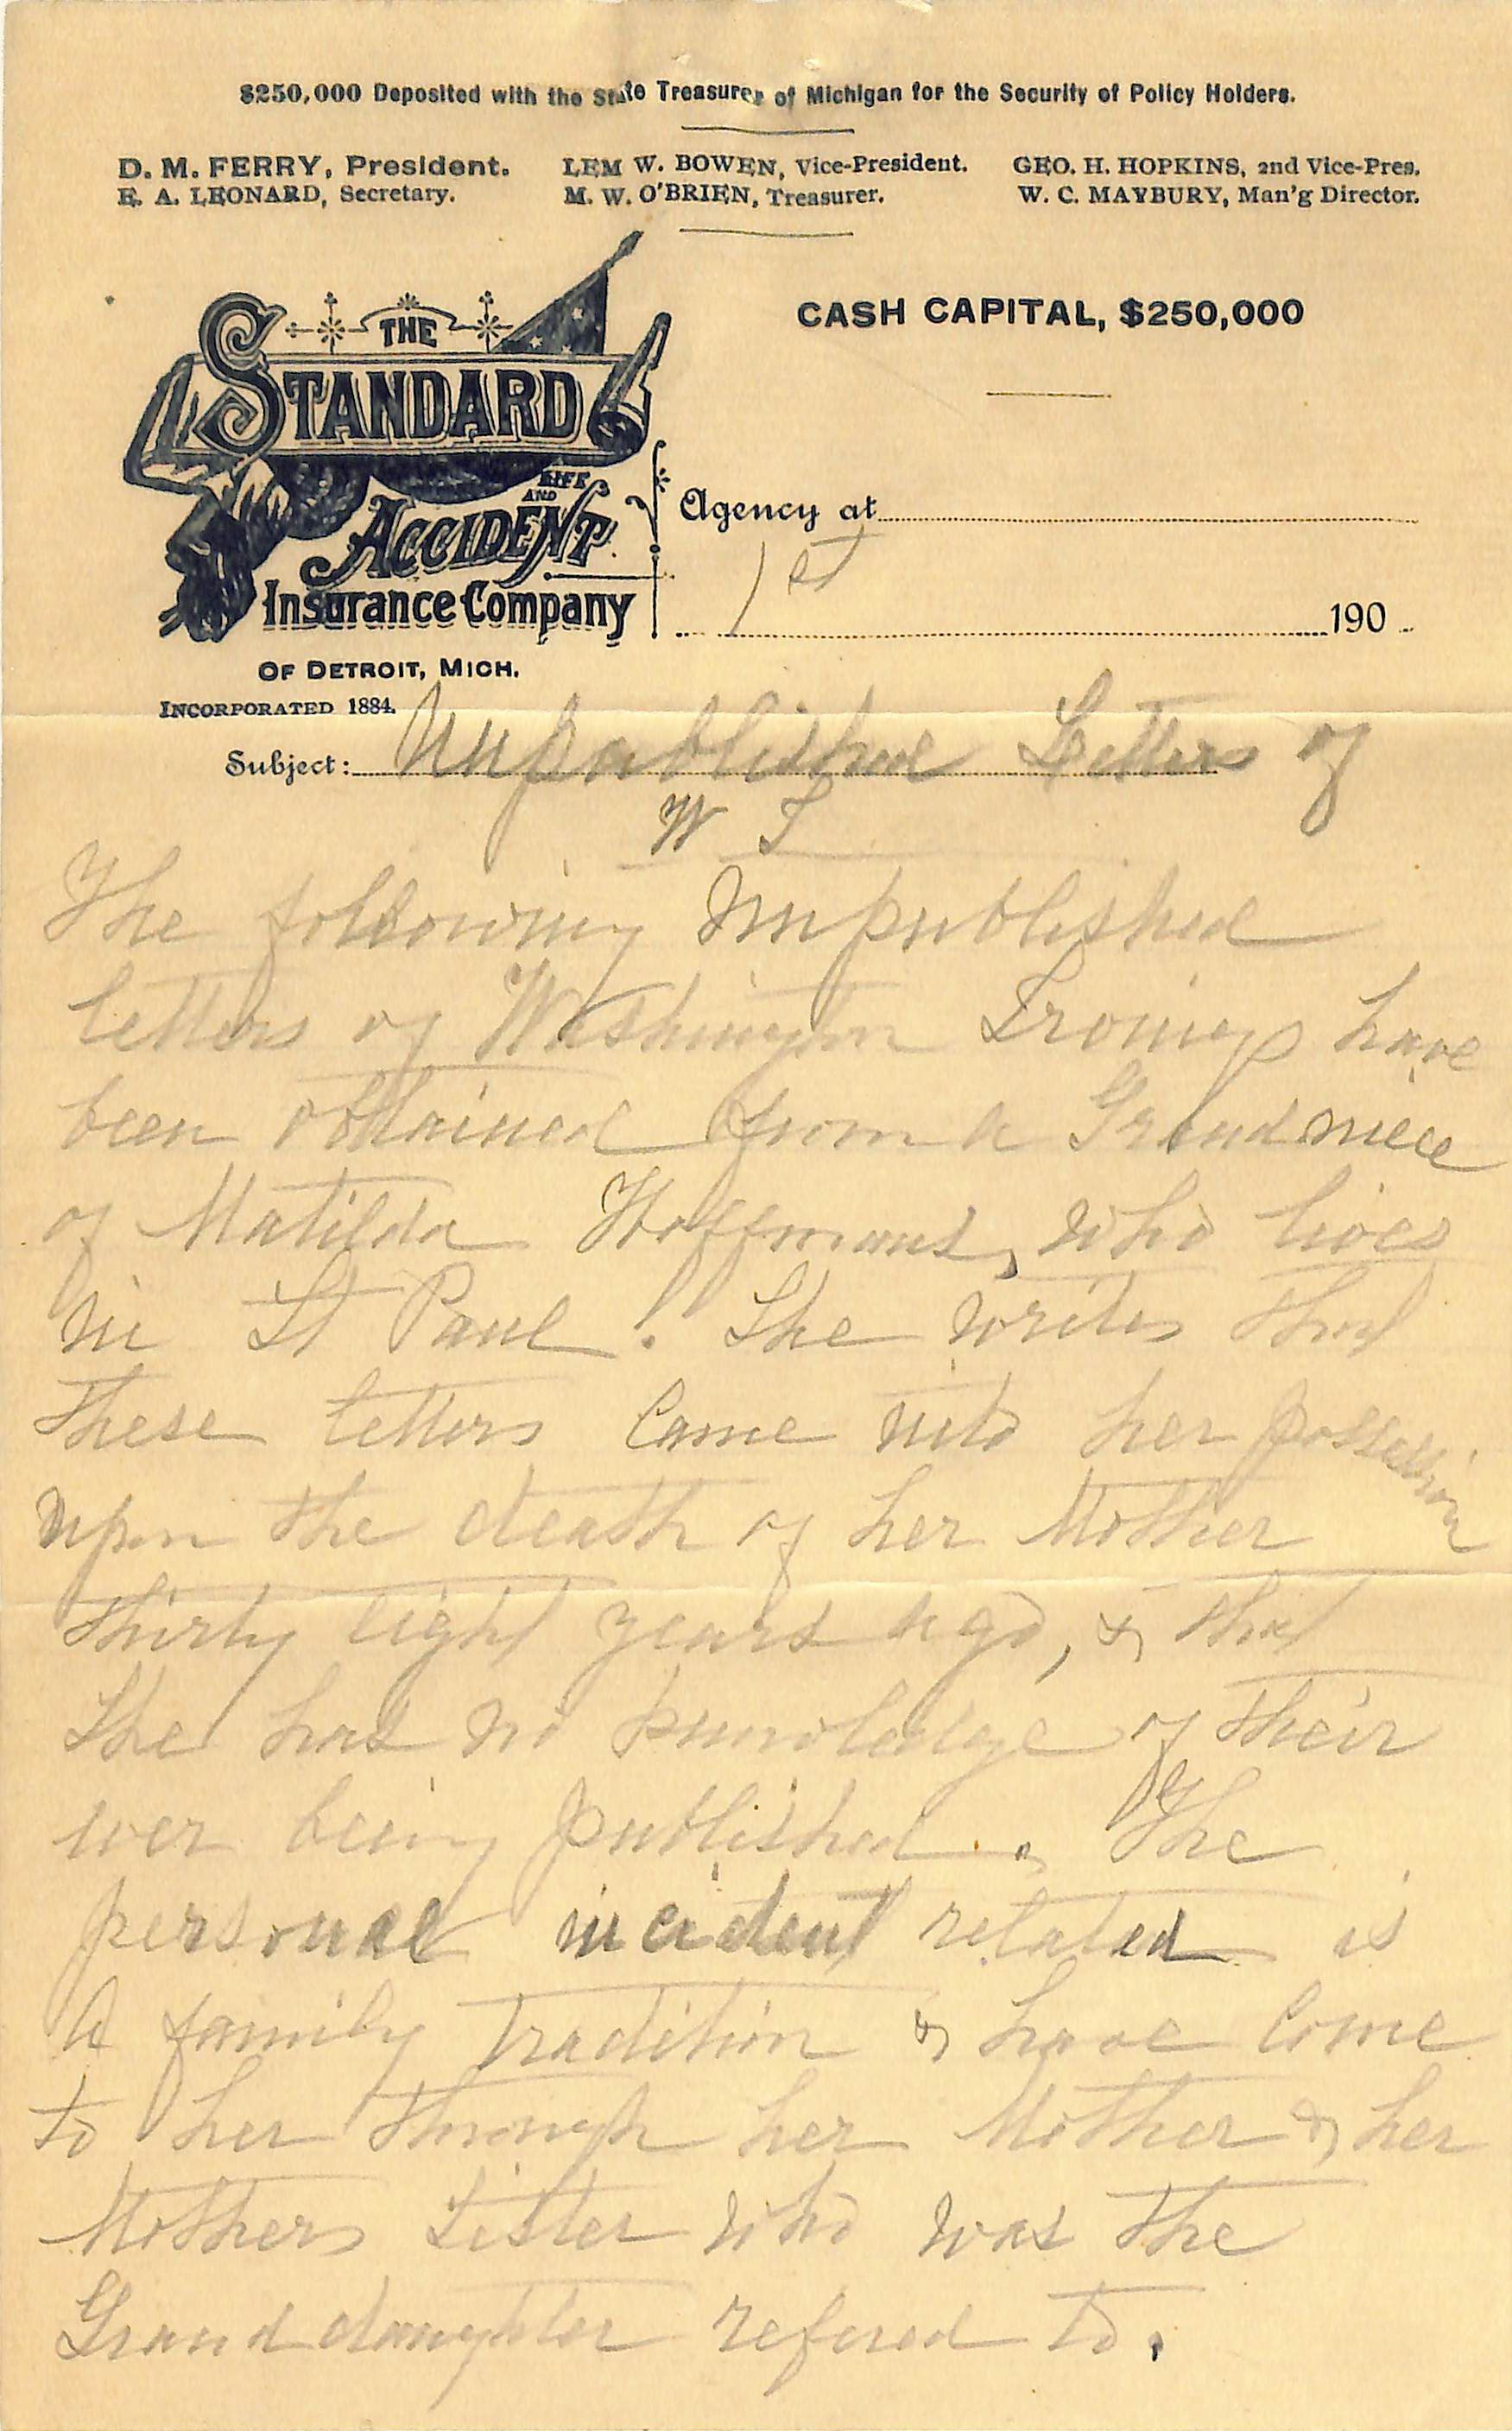 $250,000 Deposited with the State Treasurer of Michigan for the Security of Policy Holders.
D. M. FERRY, President. LEM W. BOWEN, Vice-President. GEO. H. HOPKINS, 2nd Vice-Pres.
E. A. LEONARD, Secretary. M. W. O'BRIEN, Treasurer. W. C. MAYBURY, Man'g Director.
THE
STANDARD
LIFE
AND
ACCIDENT
Insurance Company
OF DETROIT, MICH.
INCORPORATED 1884.
CASH CAPITAL, $250,000
Agency at
1st 190
Subject: Unpublished Letters of
W I
The following unpublished
letters of Washington Irvings have
been obtained from a Grand niece
of Matilda Hoffmans, who lives
in St Paul! She writes that
these letters came into her possession
upon the death of her Mother
thirty eight years ago, & that
She has no knowledge of their
ever being published. The
personal incident related is
a family tradition & have come
to her through her Mother & her
Mothers Sister who was the
Grand daughter refered to.